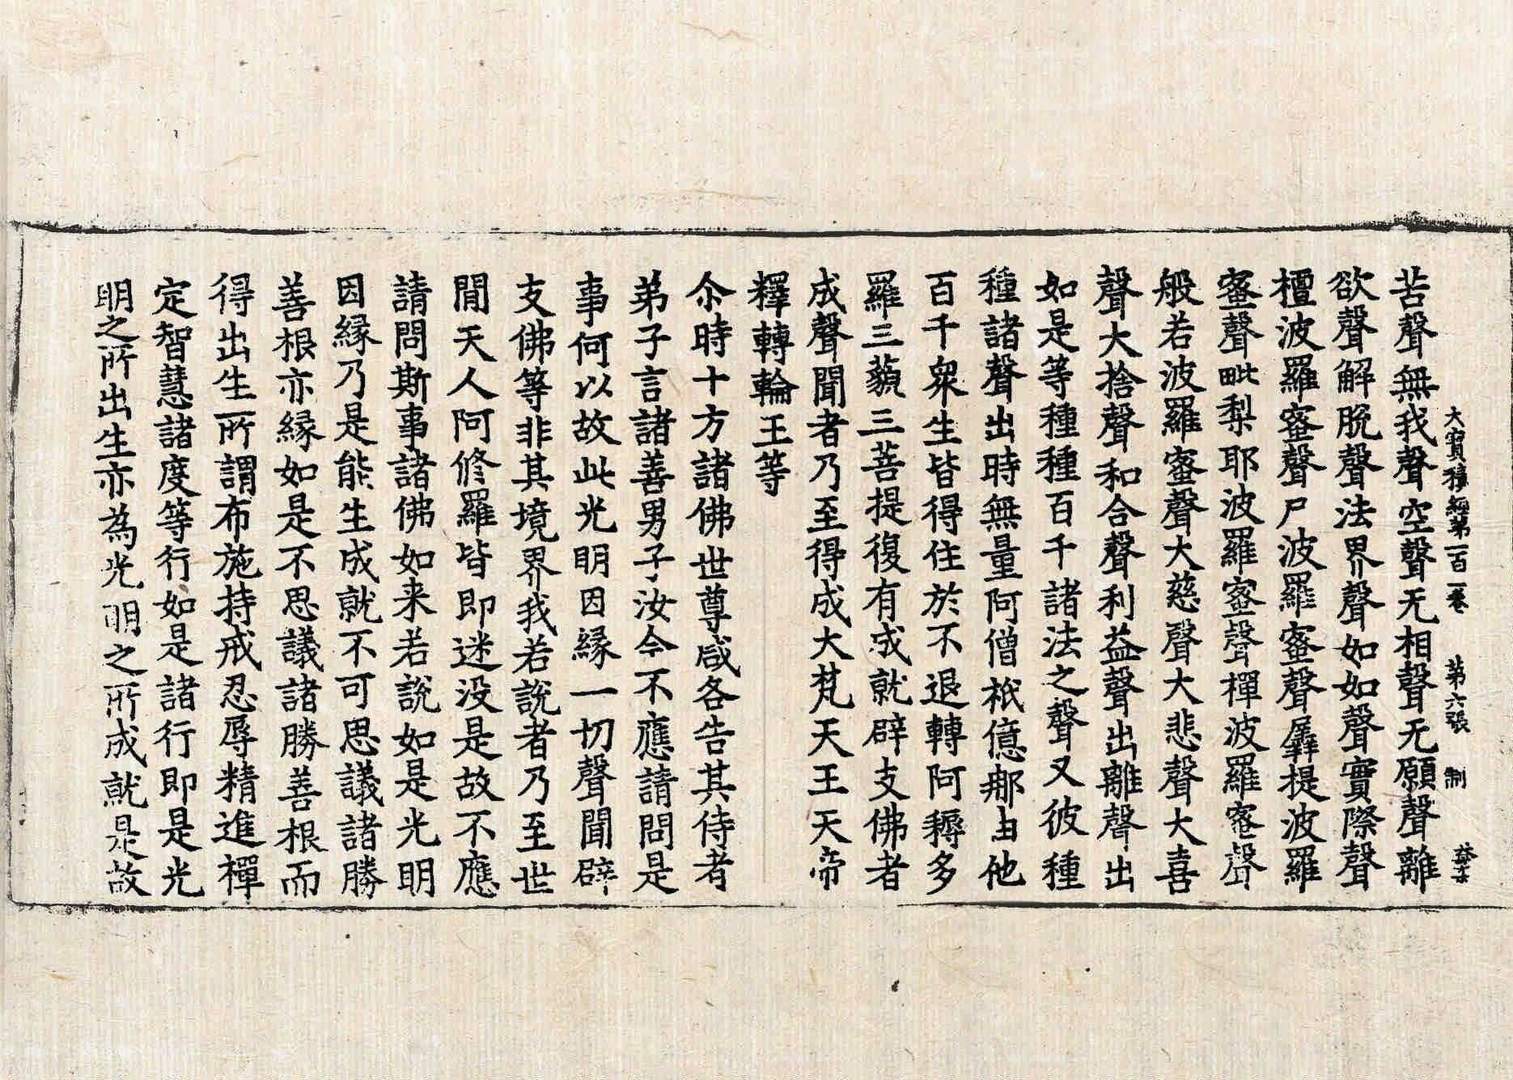 大寶積經第一百一卷 第六張 制
苦聲無我聲空聲无相聲无願聲離
欲聲解脫聲法界聲如如聲實際聲
檀波羅蜜聲尸波羅蜜聲羼提波羅
蜜聲毗梨耶波羅蜜聲禪波羅蜜聲
般若波羅蜜聲大慈聲大悲聲大喜
聲大捨聲和合聲利益聲出離聲出
如是等種種百千諸法之聲又彼種
種諸聲出時無量阿僧祇億那由他
百千衆生皆得住於不退轉阿耨多
羅三藐三菩提復有成就辟支佛者
成聲聞者乃至得成大梵天王天帝
釋轉輪王等
尒時十方諸佛世尊咸各告其侍者
弟子言諸善男子汝今不應請問是
事何以故此光明因緣一切聲聞辟
支佛等非其境界我若說者乃至世
閒天人阿修羅皆即迷没是故不應
請問斯事諸佛如来若說如是光明
因緣乃是能生成就不可思議諸勝
善根亦緣如是不思議諸勝善根而
得出生所謂布施持戒忍辱精進禪
定智慧諸度等行如是諸行即是光
明之所出生亦為光明之所成就是故